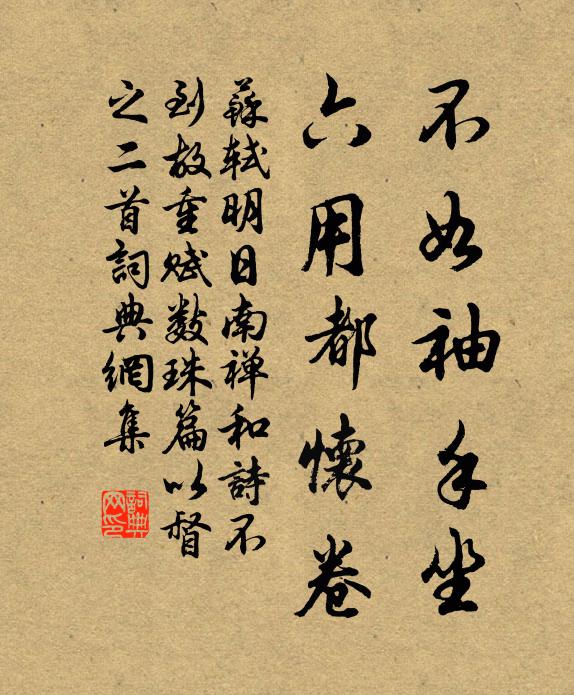 不如袖手坐
六用都懷卷
蘇軾明日南禅和詩不
到故重赋數珠篇以督
之二首詞典網集
詞典網印